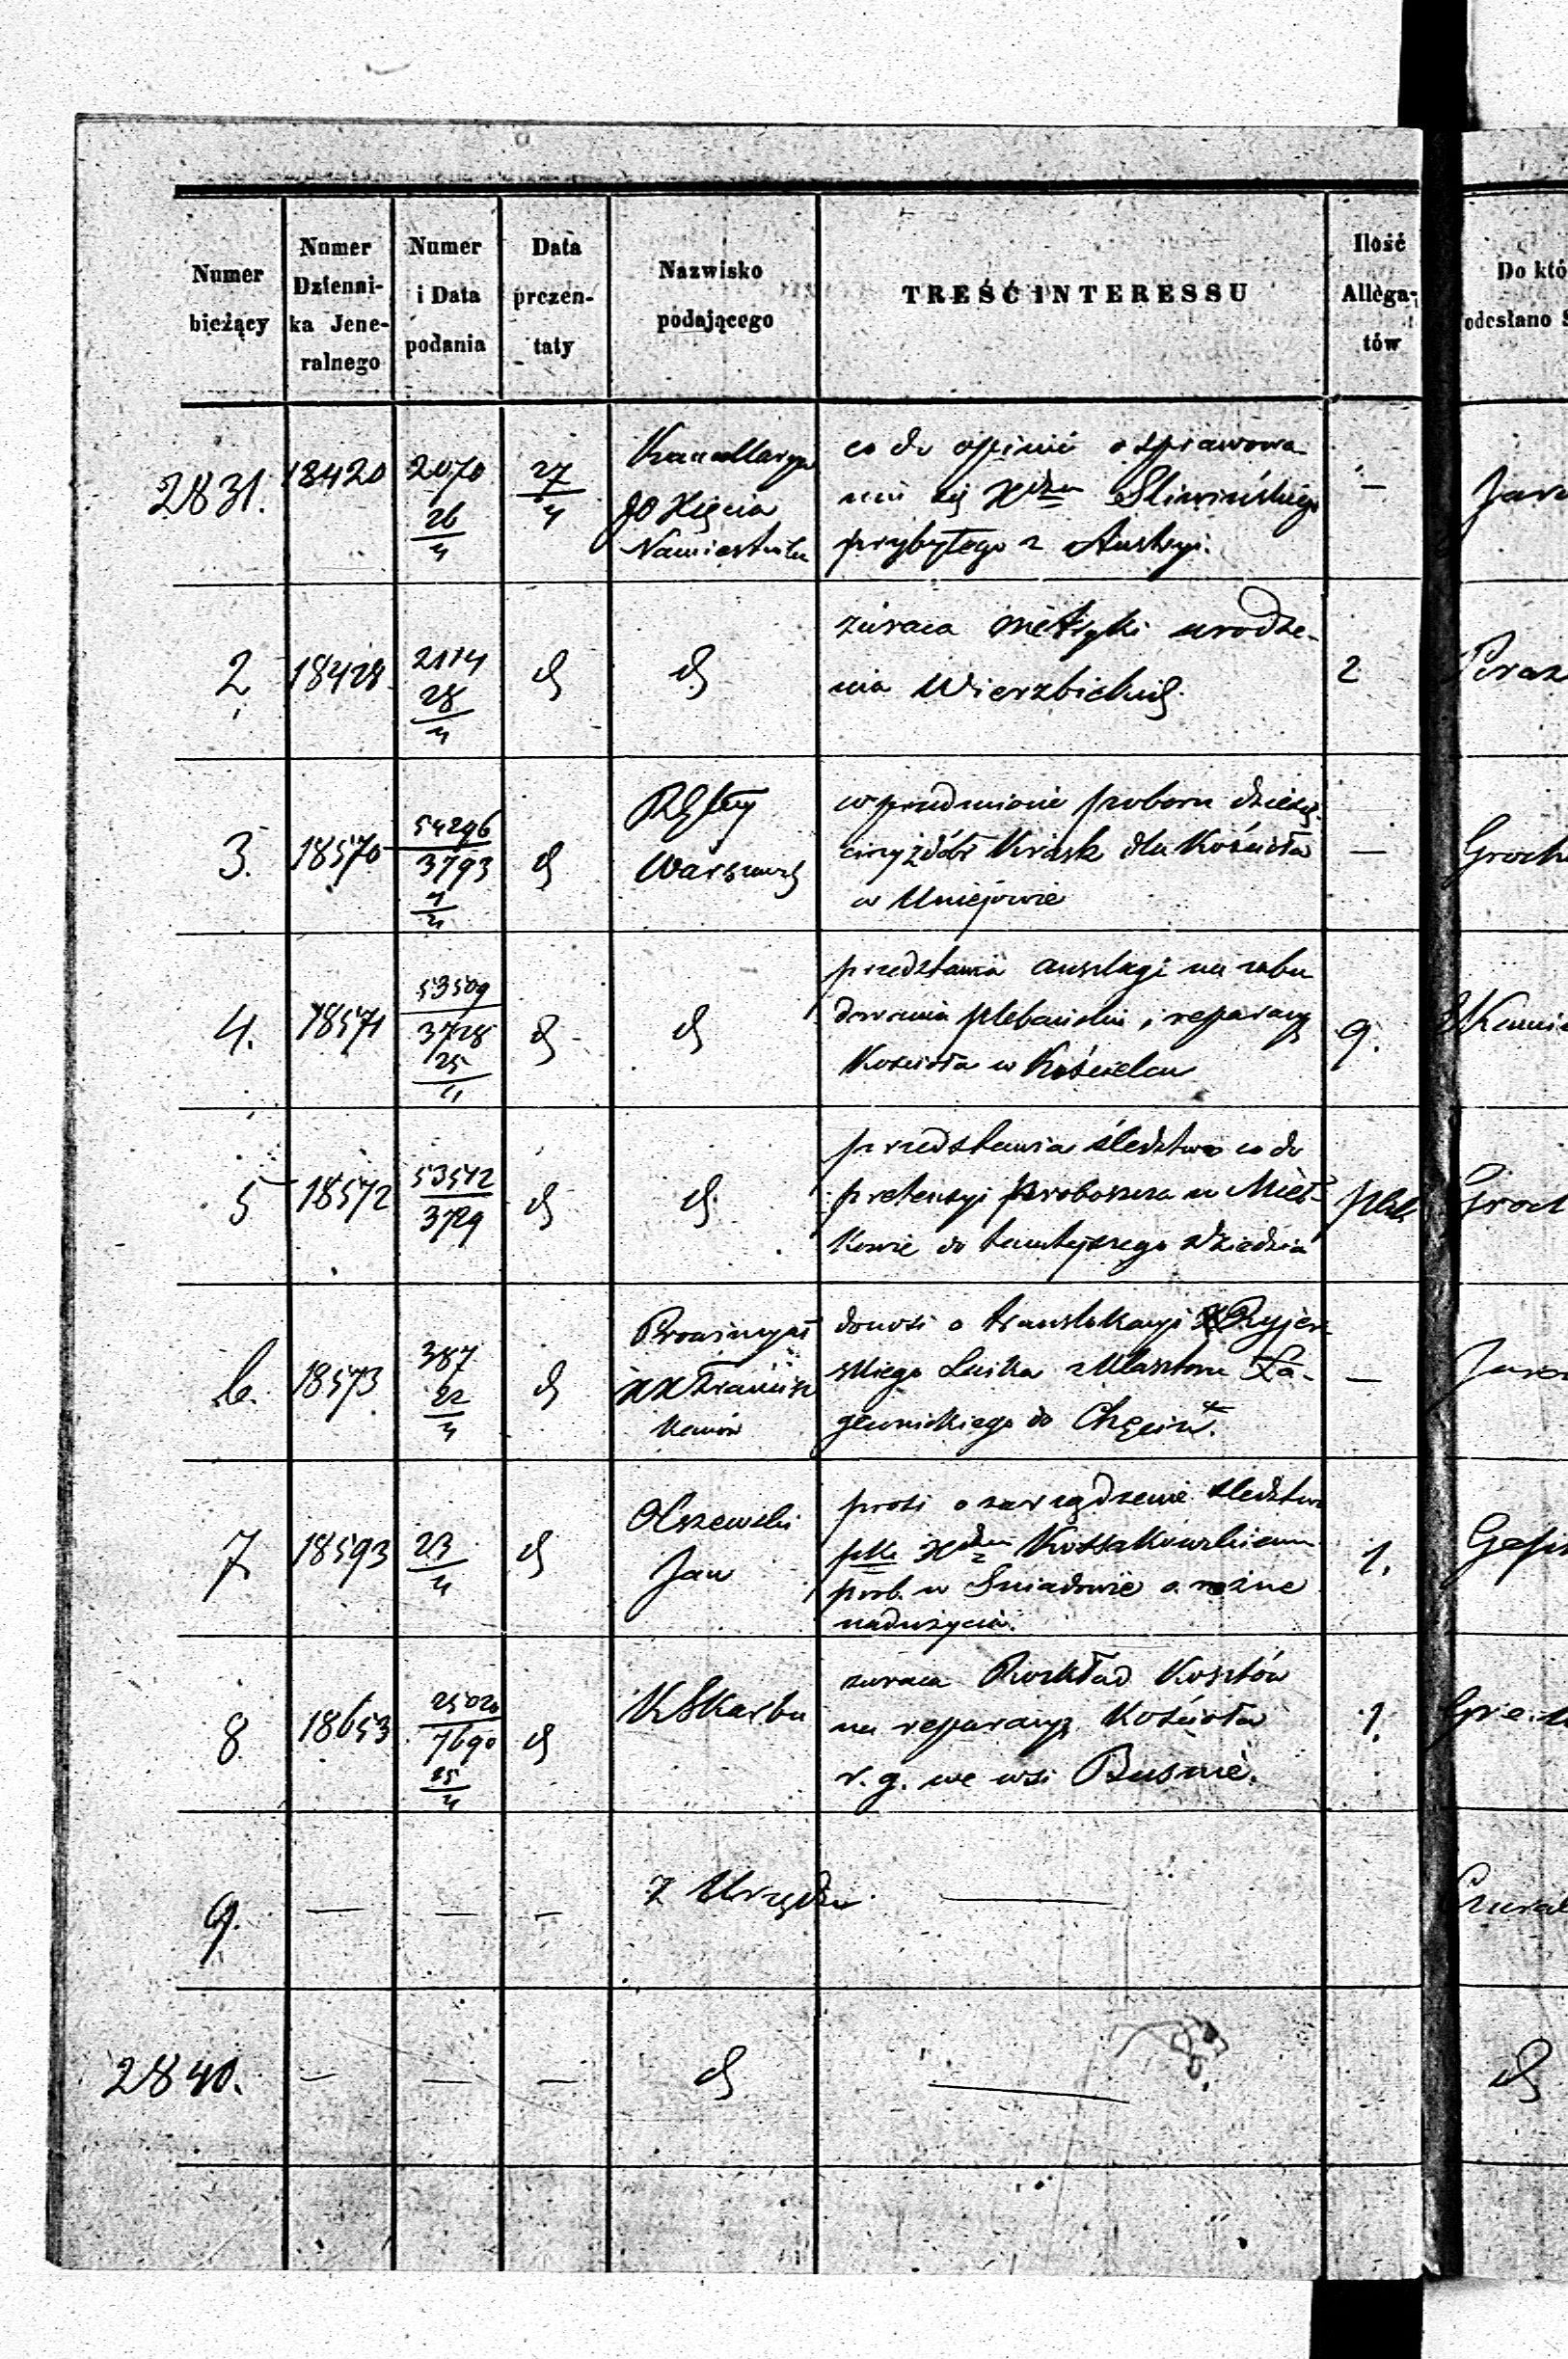 Numer bieżący | Numer Dzienni- ka Jene- ralnego | Numer i Data podania | Data prezen- taty | Nazwisko podającego | TREŚĆ INTERESSU | Ilość Allega- tów | Do któ
odesłano S
2831. 18420 2070 26/4 27/4
Kancellarya
JO Xięcia
Namiestnika
co do opinii o sprawowa
niu się Xdza Sliwińskiego
przybyłego z Austryi.
—
2 18428 2114 28/4 d
d
zwraca metryki urodze-
nia Wierzbickich
2
3. 18570 54296/3793 d
Warszaws
w przedmiocie poboru dziesię
ciny z dóbr Krask dla Kościoła
w Uniejowie
—
4. 18571 53509/3728 25/4 d
d
przedstawia anszlagi na zabu
dowania plebańskie i reparacyę
Kościoła w Kościelcu
9.
5 18572 53512/3729 d
d
przedstawia śledztwo co do
pretensyi proboszcza w
kowie do tamtejszego dziedzica
plik
6. 18573 387 22/4 d
Prowincyał
XX Francisz
kanów
donosi o translokacyi X Ryjer
skiego Laika z Klasztoru Ła-
giewnickiego do Chęcin.
—
7 18593 23/4 d
Olszewski
Jan
prosi o zarządzenie śledztwa
pko Xdzu Kossakowskiemu
prob. w Sniadowie o rożne
nadużycia.
1.
8 18653 25020/7690 25/4 d
K Skarbu
zwraca Rozkład Kosztów
na reparacyę Kościoła
r. g. we wsi Busnie.
1.
9. — — —
Z Urzędu
—
2840. — — —
d
—
d